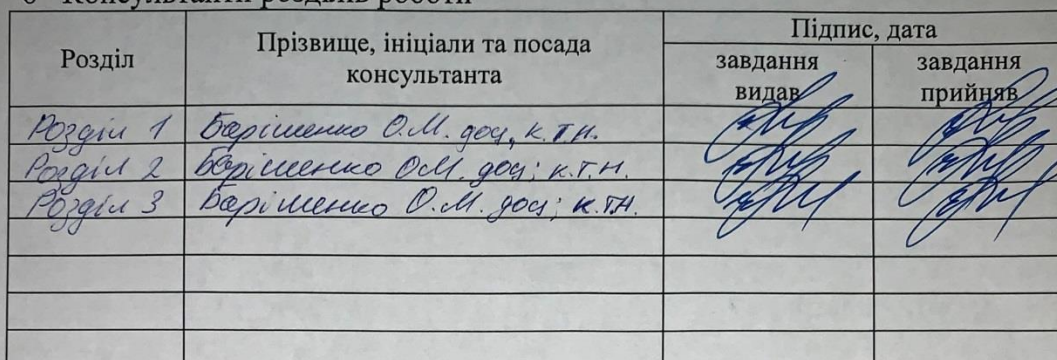 6 Консультанти розділів роботи
Розділ
Прізвище, ініціали та посада
консультанта
Підпис, дата
завдання
видав
завдання
прийняв
Розділ 1 Барішенко О.М. доц., к.т.н.
Розділ 2 Барішенко О.М. доц; к.т.н.
Розділ 3 Барішенко О.М. доц; к.т.н.